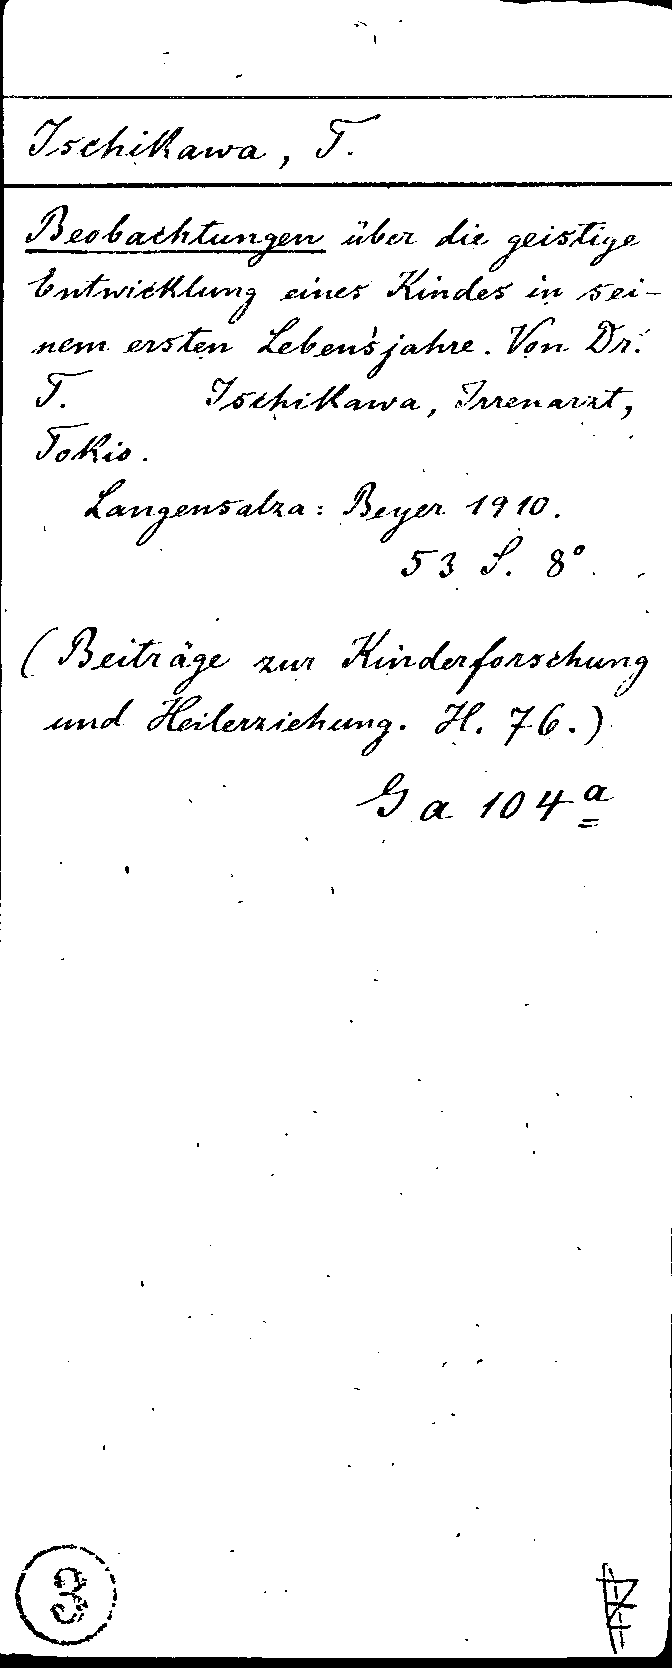 Ischikawa, T.
Beobachtungen über die geistige
Entwicklung eines Kindes in sei-
nem ersten Lebensjahre. Von Dr.
T. Ischikawa, Irrenarzt,
Tokio.
Langensalza: Beyer 1910.
53 S. 8°.
(Beiträge zur Kinderforschung
und Heilerziehung. H. 76.)
G a 104 a
3